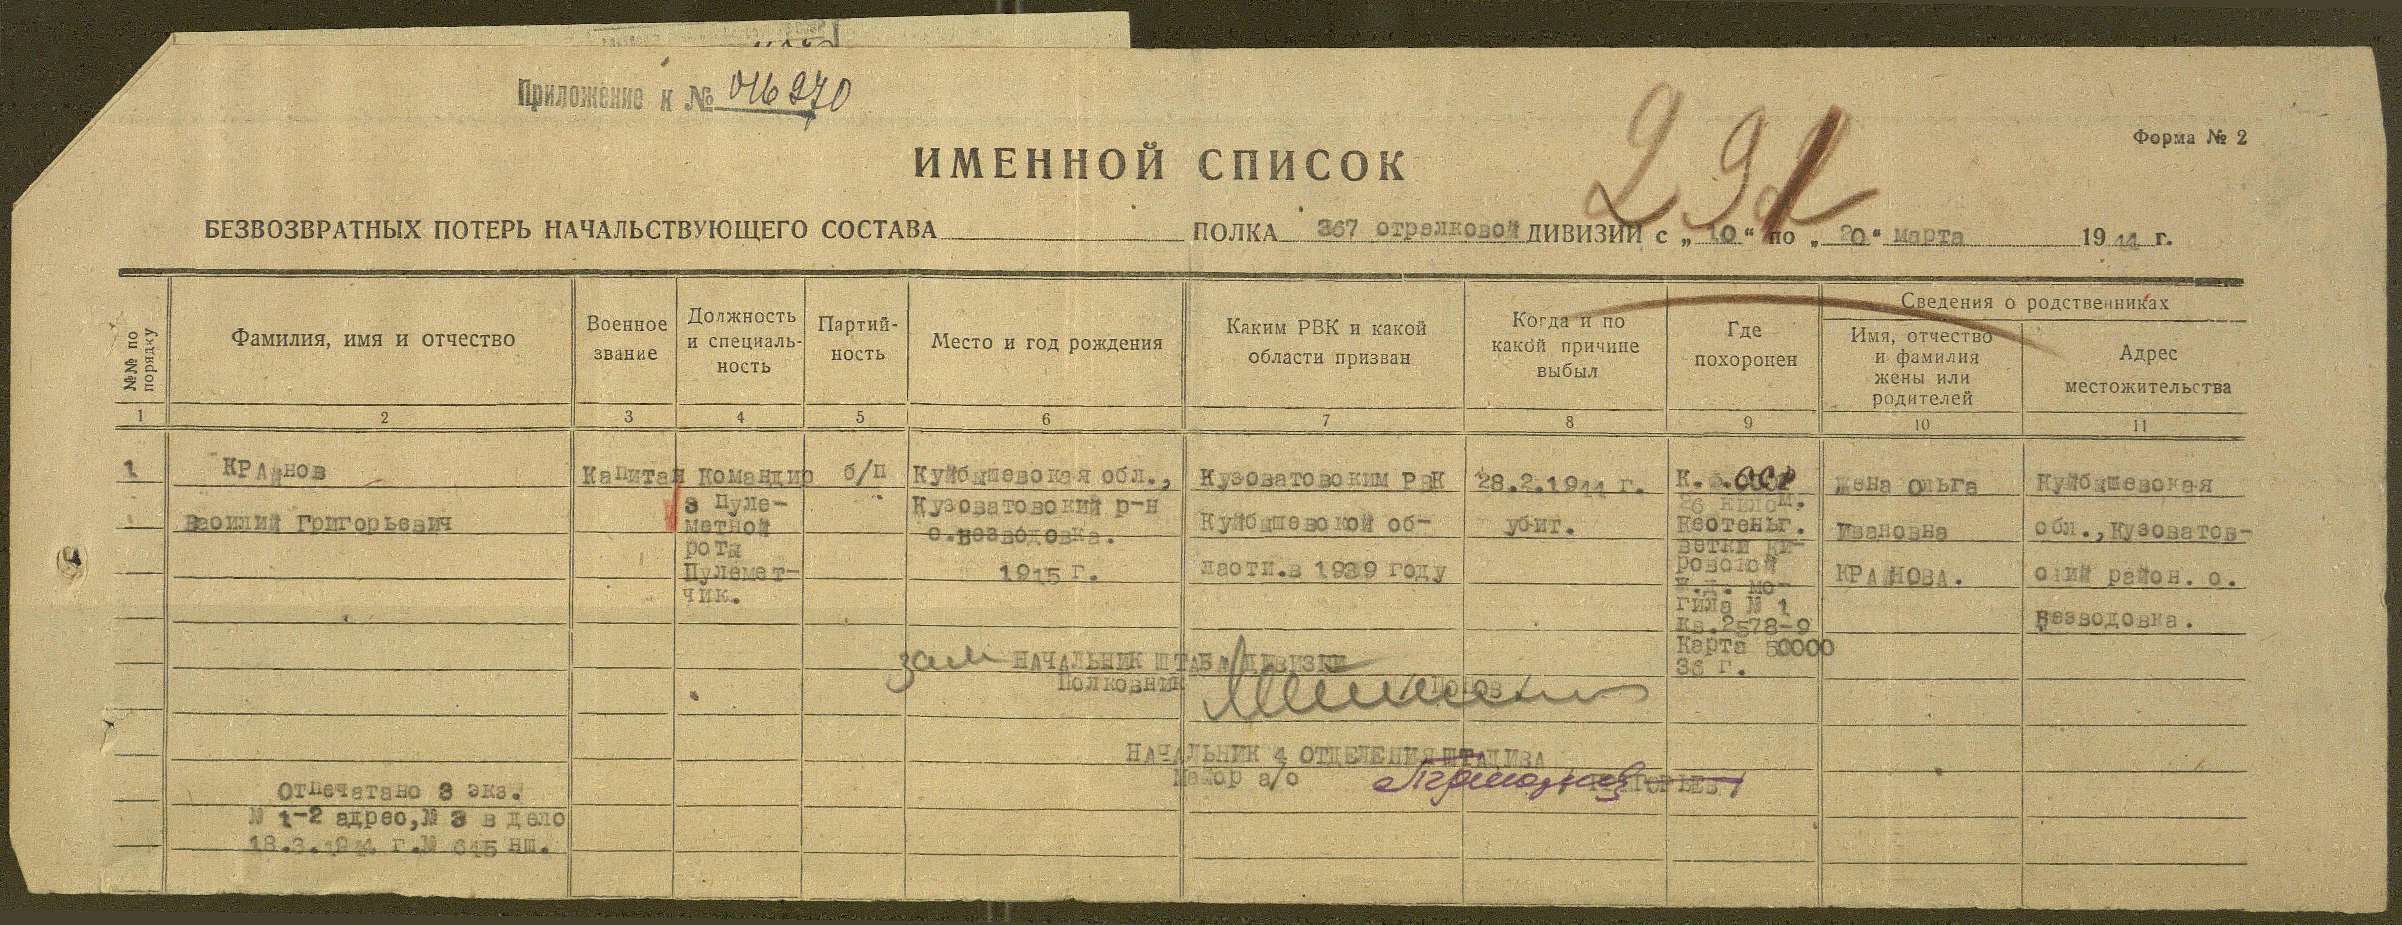 Приложение к № 016270
292
Форма № 2
ИМЕННОЙ СПИСОК
БЕЗВОЗВРАТНЫХ ПОТЕРЬ НАЧАЛЬСТВУЮЩЕГО СОСТАВА ПОЛКА 367 стрелковой ДИВИЗИИ с „ 10 “ по „ 20 “ марта 1944 г.
№№ по порядку
Фамилия, имя и отчество
Военное звание
Должность и специаль-
ность
Партий-
ность
Место и год рождения
Каким РВК и какой
области призван
Когда и по
какой причине
выбыл
Где
похоронен
Сведения о родственниках
Имя, отчество
и фамилия
жены или
родителей
Адрес
местожительства
1 2 3 4 5 6 7 8 9 10 11
1
КРАйНОВ
Василий Григорьевич
Капитан
Командир
3 Пуле-
метной
роты
Пулемет-
чик.
б/п
Куйбышевская обл.,
Кузоватовский р-н
с.Безводовка.
1915 г.
Кузоватовским РВК
Куйбышевской об-
ласти.в 1939 году
28.2.1944 г.
убит.
К. Ф.ССР
26 килом.
Кестеньг.
ветки Ки-
ровской
ж.д. мо-
гила № 1
Кв.2578-9
Карта 50000
36 г.
Жена Ольга
Ивановна
КРАЙНОВА.
Куйбышевская
обл., Кузоватов-
ский район. с.
Безводовка.
зам НАЧАЛЬНИК ШТАБА ДИВИЗИИ
Полковник
НАЧАЛЬНИК 4 ОТДЕЛЕНИЯ ШТАДИВА
Майор а/с
Отпечатано 3 экз.
№ 1-2 адрес, № 3 в дело
18.3.1944 г.№ 615 нш.